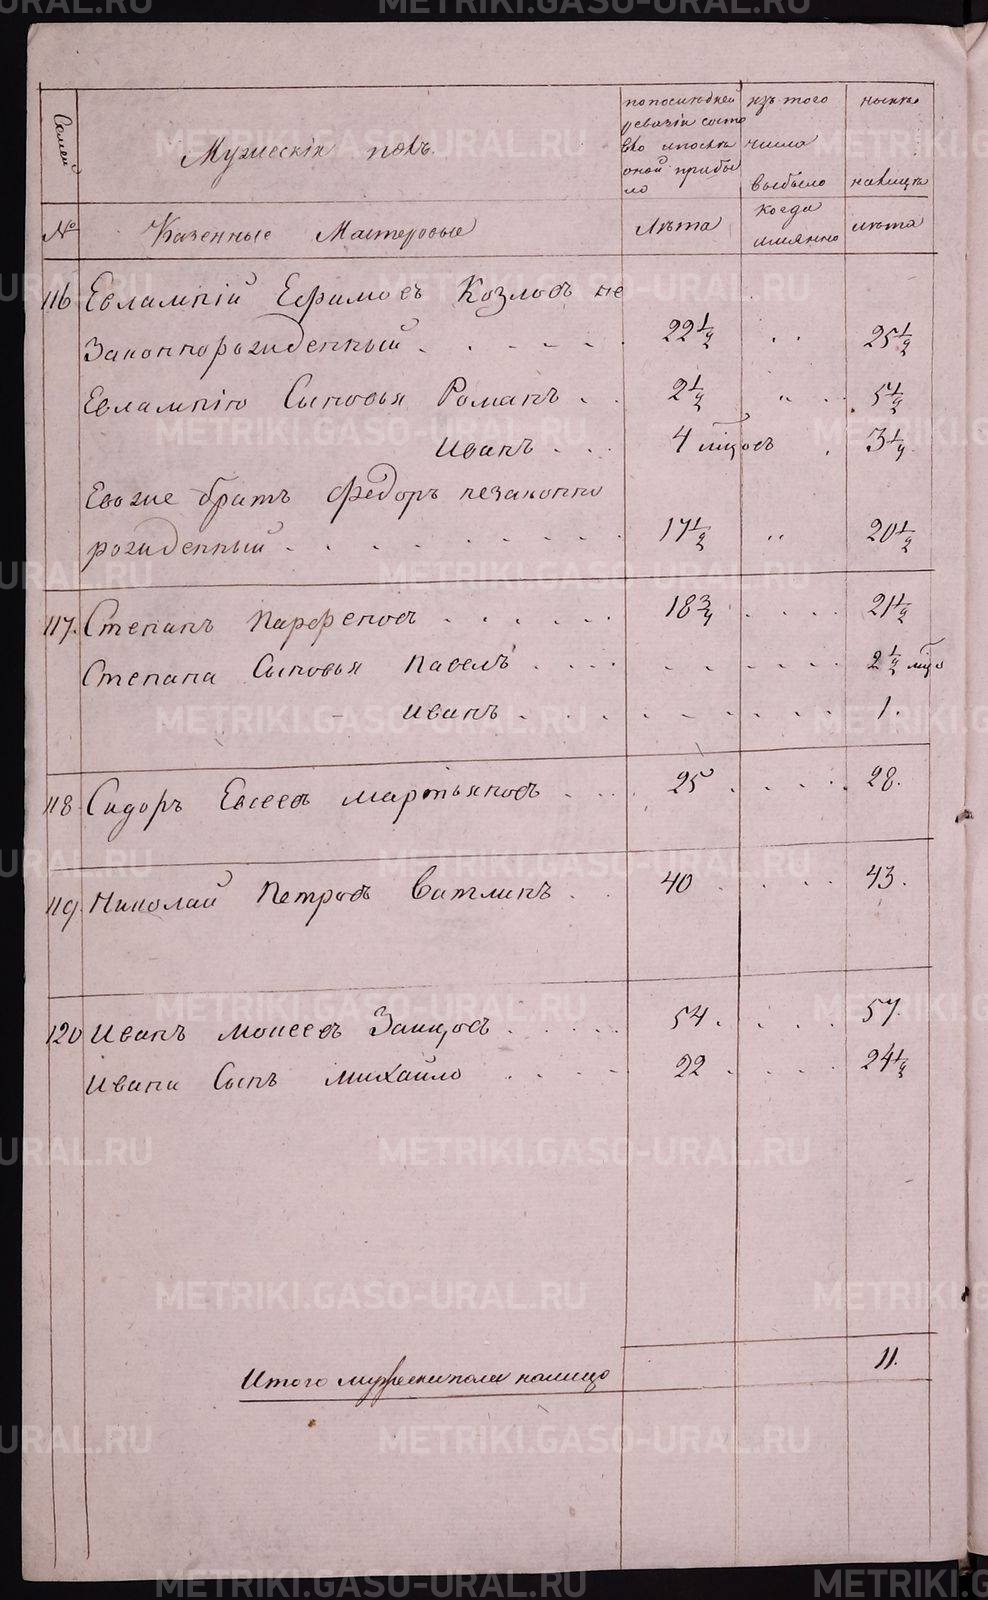 Семей
Мужескiй полъ.
по последней
ревизiи состо
яло и после
оной прибы
ло
изъ того
числа
выбыло
ныне
налицо
№
Казенные Мастеровые
Лѣта
когда
имянно
лѣта
116 Евлампiй Ефимовъ Козловъ не
законнорожденный . . . . . 22 1/2 . . 25 1/2
Евлампiю Сыновья Романъ . . 2 1/2 " . . 5 1/2
Иванъ . . . 4 мцовъ . 3 1/4
Евожъ братъ Федоръ незаконно
рожденный . . . . . . . . . 17 1/2 " 20 1/2
117. Степанъ Парфеновъ . . . . . . 18 3/4 . . . . 21 1/2
Степана Сыновья Павелъ . . . . . . . . . . . 2 1/2 мцо
Иванъ . . . . . . . . . . 1.
118 Сидоръ Евсеевъ Мартьяновъ . . . . 25 . . . . 28.
119 Николай Петровъ Вятлинъ . . 40 . . . . 43.
120 Иванъ Моисеевъ Заицовъ . . . . . 54 . . . . . 57.
Ивана Сынъ Михайло . . . . . 22 . . . . 24 1/2
Итого мужеска пола налицо 11.
METRIKI.GASO-URAL.RU